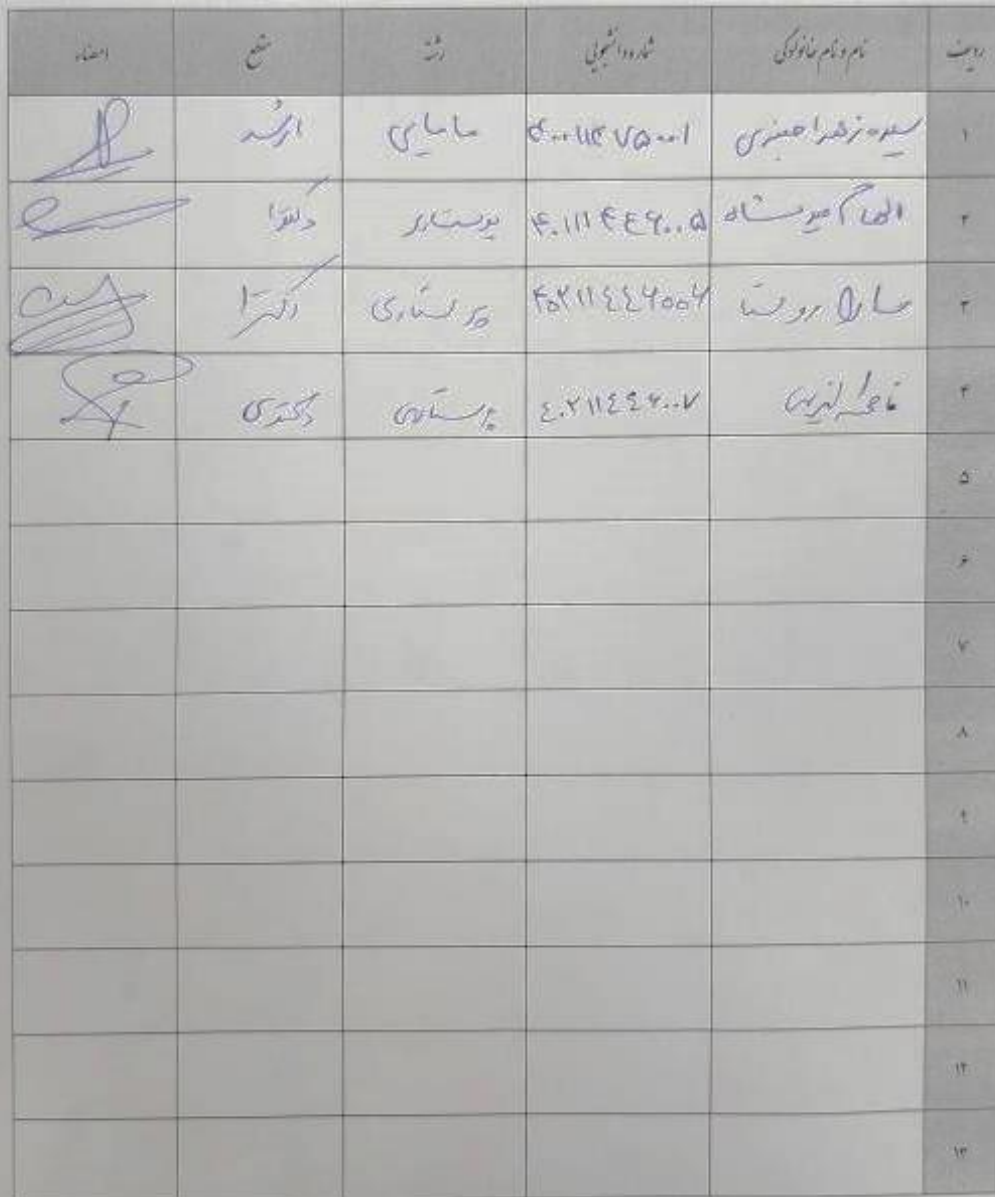 ردیف نام و نام خانوادگی شماره دانشجویی رشته مقطع امضاء
۱ سیده زهرا ۴۰۰۱۱۴۷۵۰۰۱ مامایی ارشد
۲ الهام میرشاه ۴۰۱۱۱۴۴۶۰۰۵ پرستاری دکترا
۳ سارا روستا ۴۰۲۱۱۴۴۶۰۰۶ پرستاری دکترا
۴ فاطمه ۴۰۲۱۱۴۴۶۰۰۷ پرستاری دکتری
۵
۶
۷
۸
۹
۱۰
۱۱
۱۲
۱۳